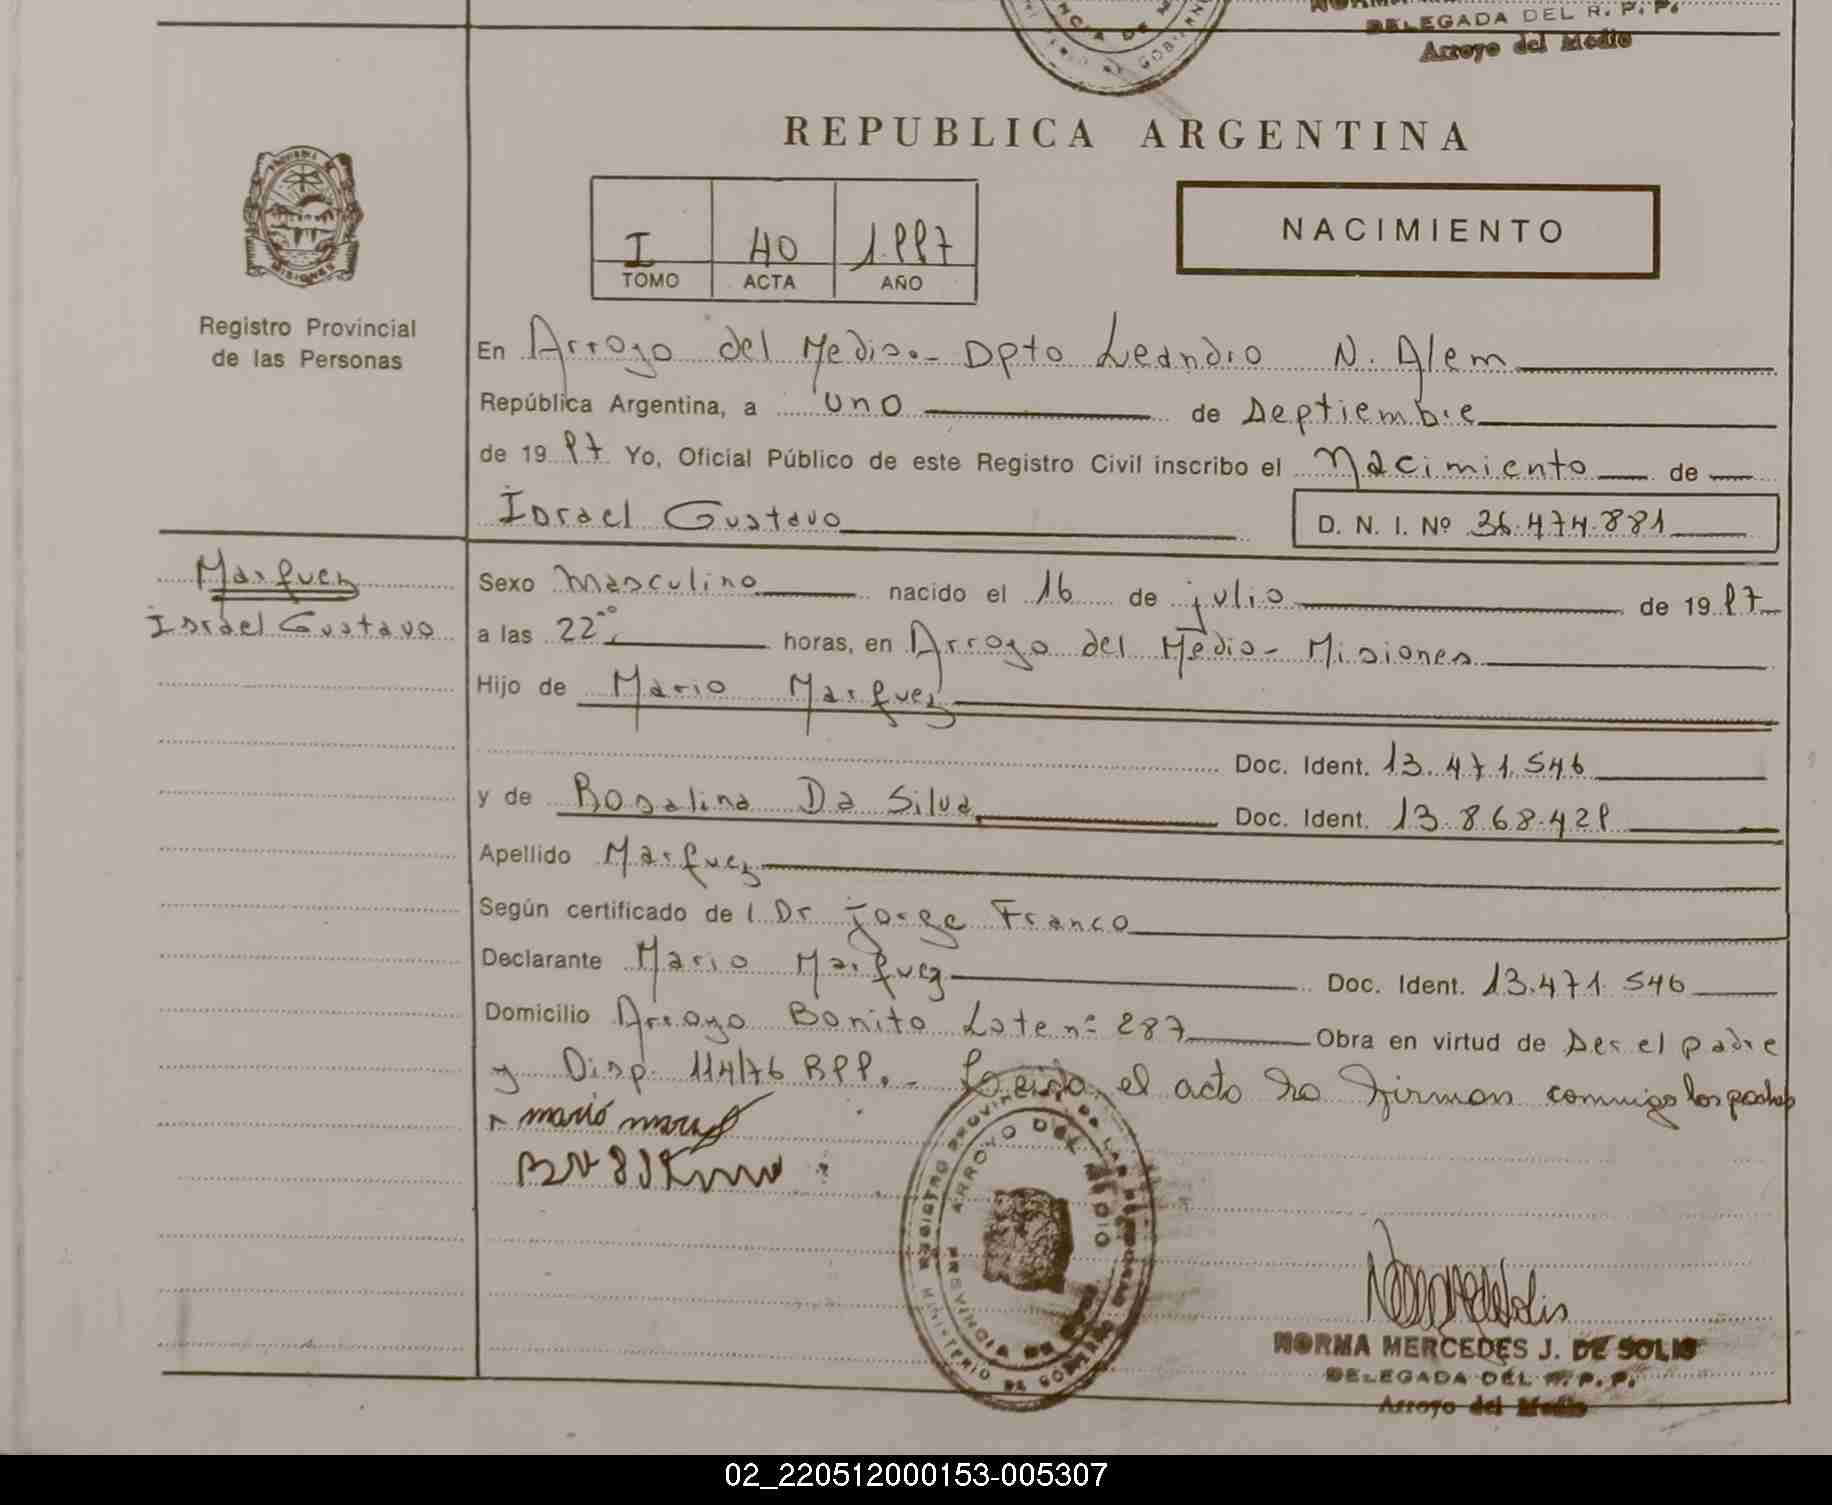 DELEGADA DEL R. P. P.
Arroyo del Medio
REPUBLICA ARGENTINA
NACIMIENTO
I 40 1.987
TOMO ACTA AÑO
MISIONES
Registro Provincial
de las Personas
En Arroyo del Medio.- Dpto Leandro N. Alem
República Argentina, a uno de Septiembre
de 19 87 Yo, Oficial Público de este Registro Civil inscribo el Nacimiento de
Israel Gustavo D. N. I. Nº 36.474.881
Marquez
Israel Gustavo
Sexo masculino nacido el 16 de julio de 19 87
a las 22 horas, en Arroyo del Medio - Misiones
Hijo de Mario Marquez
Doc. Ident. 13.471.546
y de Rosalina Da Silva Doc. Ident. 13.868.428
Apellido Marquez
Según certificado de l Dr Jorge Franco
Declarante Mario Marquez Doc. Ident. 13.471.546
Domicilio Arroyo Bonito Lote nº 287 Obra en virtud de ser el padre
y Disp. 114/76 RPP.- el acto la firman conmigo los padres
mario
REGISTRO PROVINCIAL DE LAS PERSONAS
ARROYO DEL MEDIO
PROVINCIA DE
MINISTERIO DE GOBIERNO
NORMA MERCEDES J. DE SOLIS
DELEGADA DEL R. P. P.
Arroyo del Medio
02_220512000153-005307